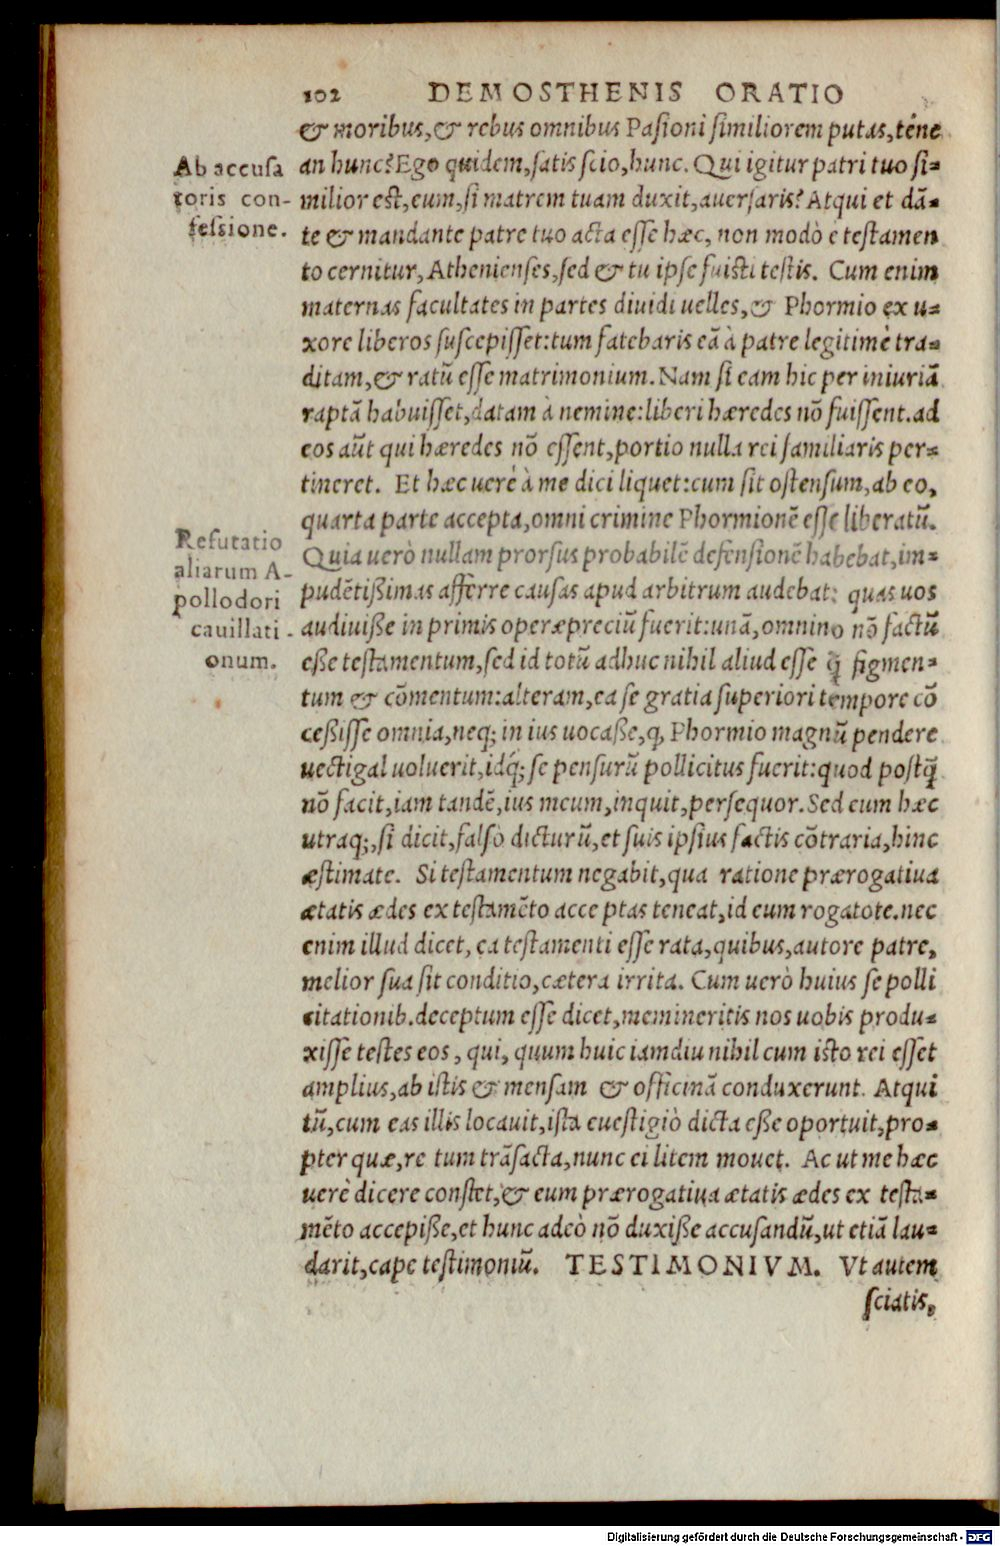 102 DEMOSTHENIS ORATIO
& moribus, & rebus omnibus Pasioni similiorem putas, téne
an hunc? Ego quidem, satis scio, hunc. Qui igitur patri tuo si-
milior est, eum, si matrem tuam duxit, auersaris? Atqui et dā-
te & mandante patre tuo acta esse hæc, non modò e testamen
to cernitur, Athenienses, sed & tu ipse fuisti testis. Cum enim
maternas facultates in partes diuidi uelles, & Phormio ex u-
xore liberos suscepisset: tum fatebaris eā à patre legitimè tra-
ditam, & ratū esse matrimonium. Nam si eam hic per iniuriā
raptā habuisset, datam à nemine: liberi hæredes nō fuissent. ad
eos aūt qui hæredes nō essent, portio nulla rei familiaris per-
tineret. Et hæc uerè à me dici liquet: cum sit ostensum, ab eo,
quarta parte accepta, omni crimine Phormionē esse liberatū.
Quia uerò nullam prorsus probabilē defensionē habebat, im-
pudētißimas afferre causas apud arbitrum audebat: quas uos
audiuiße in primis operæpreciū fuerit: unā, omnino nō factū
eße testamentum, sed id totū adhuc nihil aliud esse q̃ figmen-
tum & cōmentum: alteram, ea se gratia superiori tempore cō
ceßisse omnia, neq; in ius uocaße, q, Phormio magnū pendere
uectigal uoluerit, idq́; se pensurū pollicitus fuerit: quod postq̃
nō facit, iam tandē, ius meum, inquit, persequor. Sed eum hæc
utraq;, si dicit, falsò dicturū, et suis ipsius factis cōtraria, hinc
æstimate. Si testamentum negabit, qua ratione prærogatiua
ætatis ædes ex testamēto acceptas teneat, id eum rogatote. nec
enim illud dicet, ea testamenti esse rata, quibus, autore patre,
melior sua sit conditio, cætera irrita. Cum uerò huius se polli
citationib. deceptum esse dicet, memineritis nos uobis produ-
xisse testes eos, qui, quum huic iamdiu nihil cum isto rei esset
amplius, ab istis & mensam & officinā conduxerunt. Atqui
tū, cum eas illis locauit, ista euestigiò dicta eße oportuit, pro-
pter quæ, re tum trāsacta, nunc ei litem mouet. Ac ut me hæc
uerè dicere constet, & eum prærogatiua ætatis ædes ex testa-
mēto accepiße, et hunc adeò nō duxiße accusandū, ut etiā lau-
darit, cape testimoniū. TESTIMONIVM. Vt autem
sciatis,
Ab accusa
toris con-
fessione.
Refutatio
aliarum A-
pollodori
cauillati-
onum.
Digitalisierung gefördert durch die Deutsche Forschungsgemeinschaft - DFG